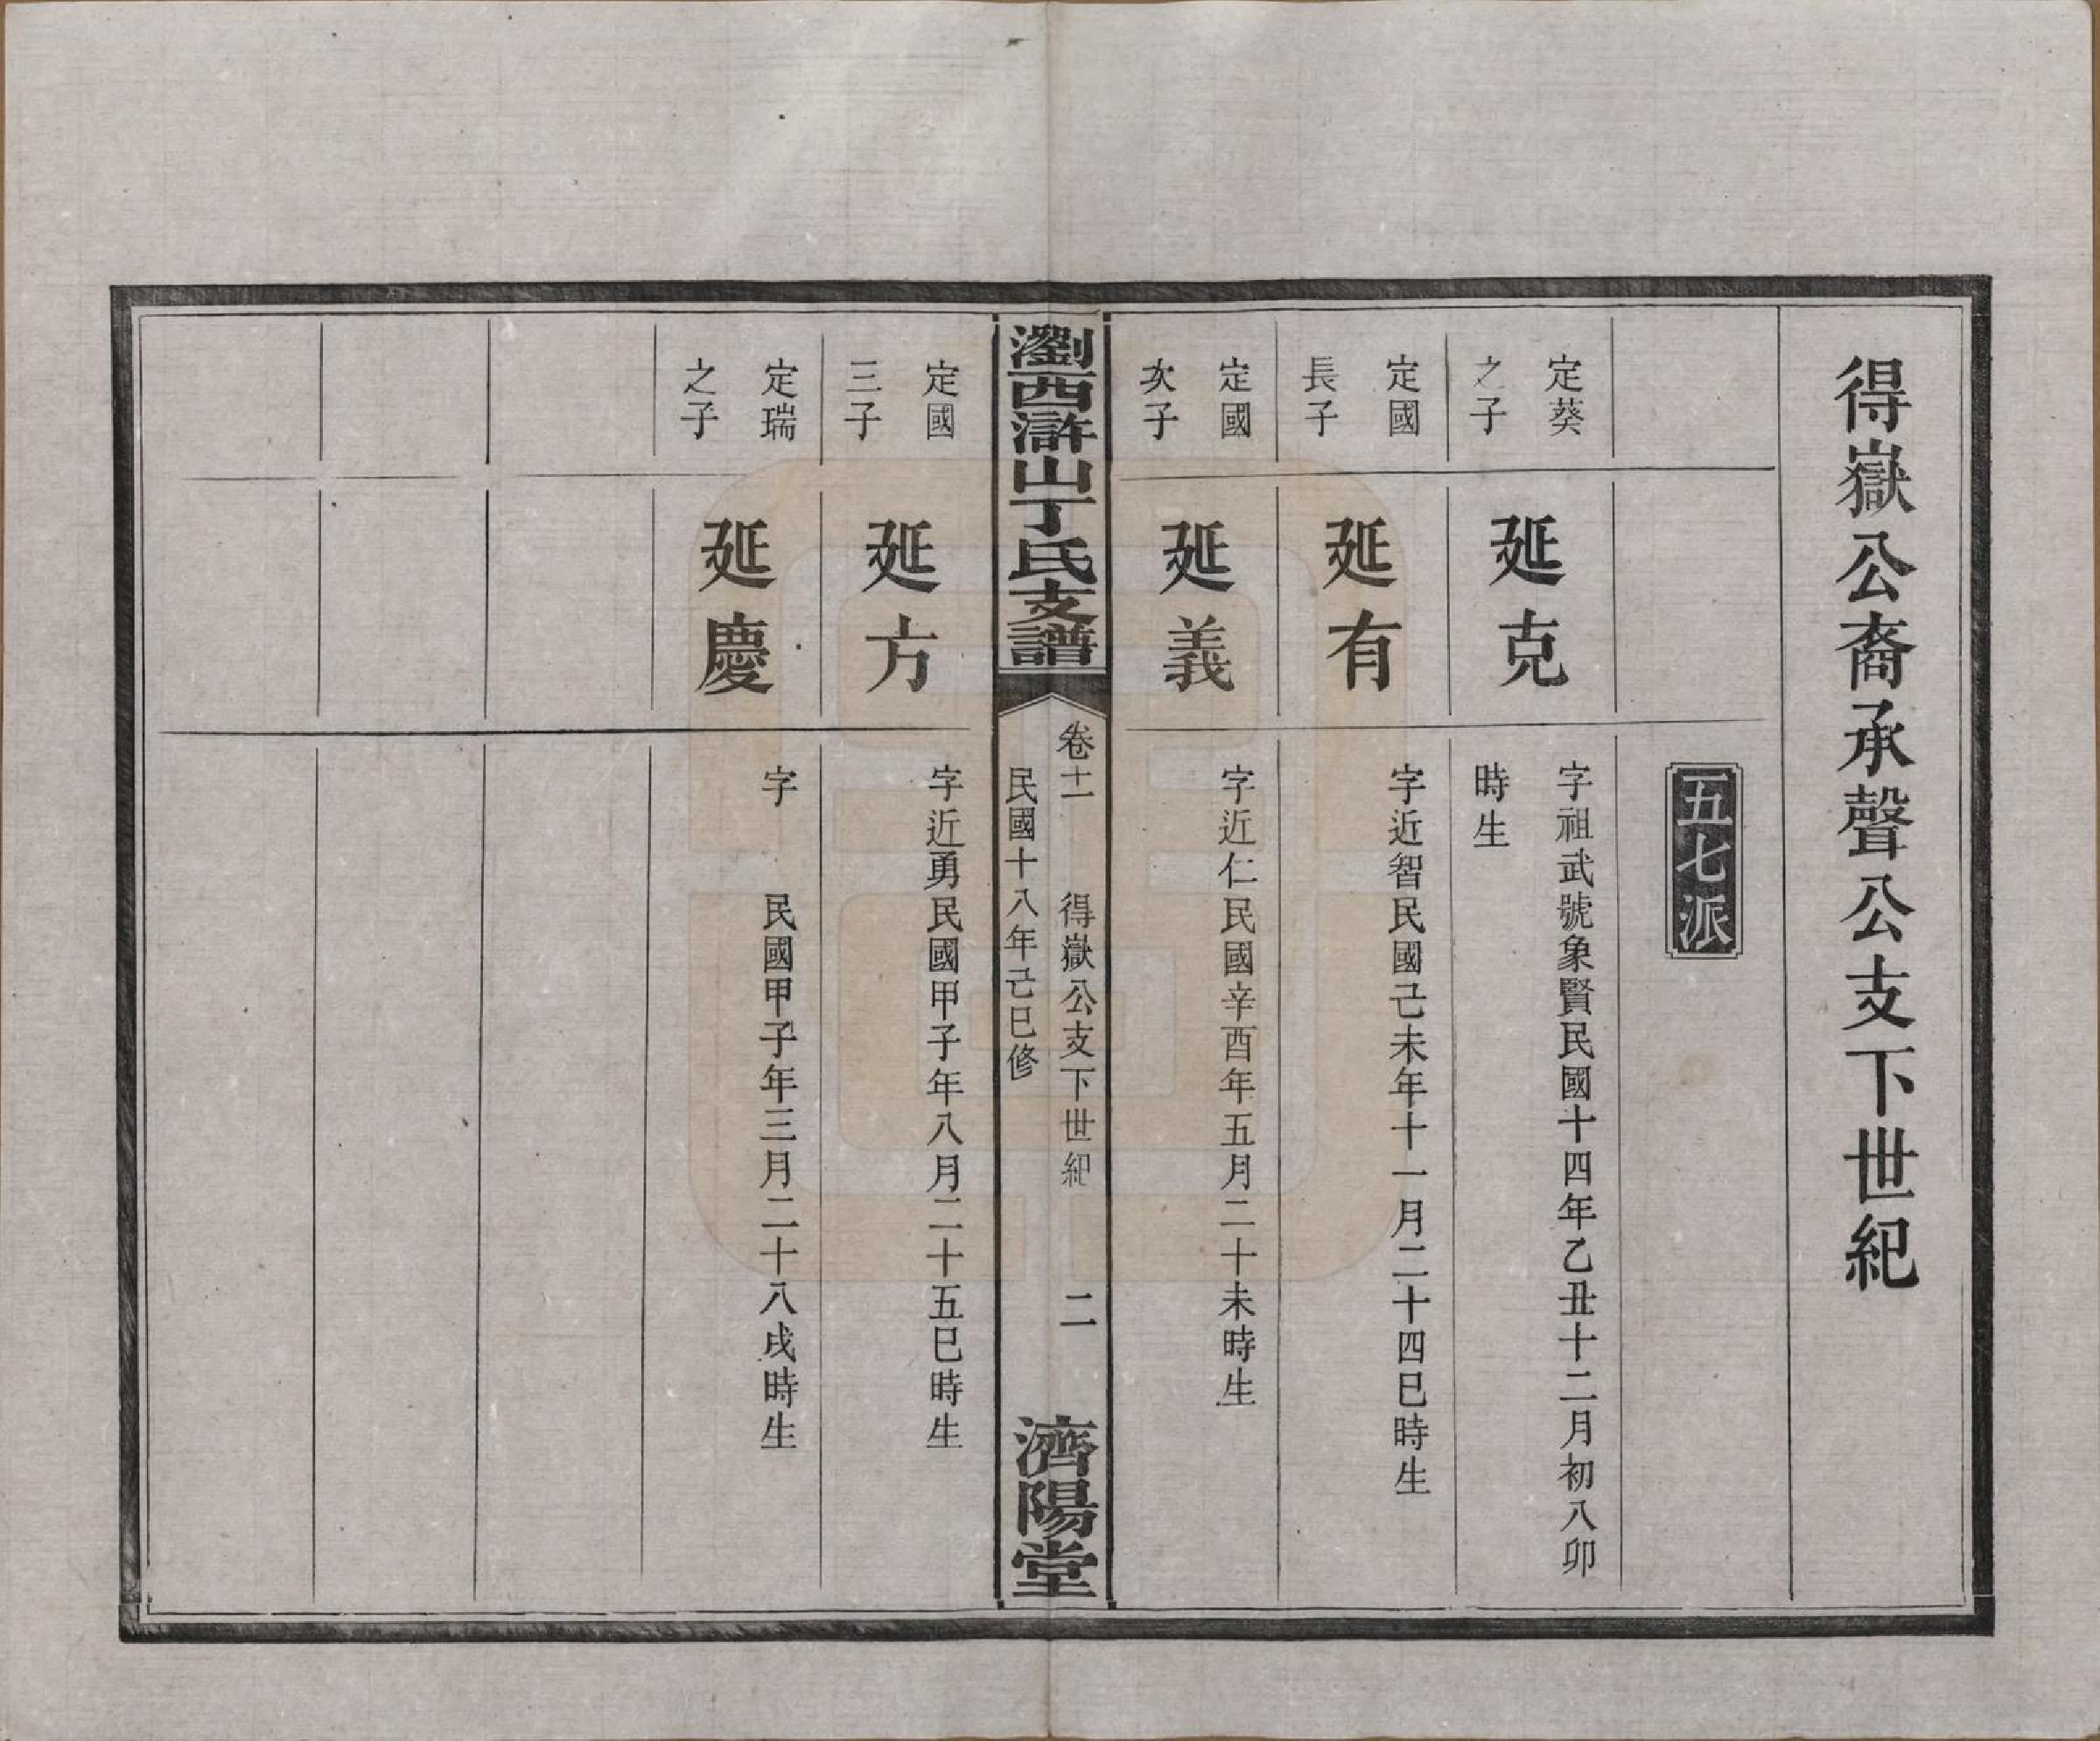 得嶽公裔承聲公支下世紀
五七派
定葵
之子
延克
字祖武號象賢民國十四年乙丑十二月初八卯
時生
定國
長子
延有
字近智民國己未年十一月二十四巳時生
定國
次子
延義
字近仁民國辛酉年五月二十未時生
瀏西滸山丁氏支譜
卷十一 得嶽公支下世紀 二
民國十八年己巳修
濟陽堂
定國
三子
延方
字近勇民國甲子年八月二十五巳時生
定瑞
之子
延慶
字 民國甲子年三月二十八戌時生